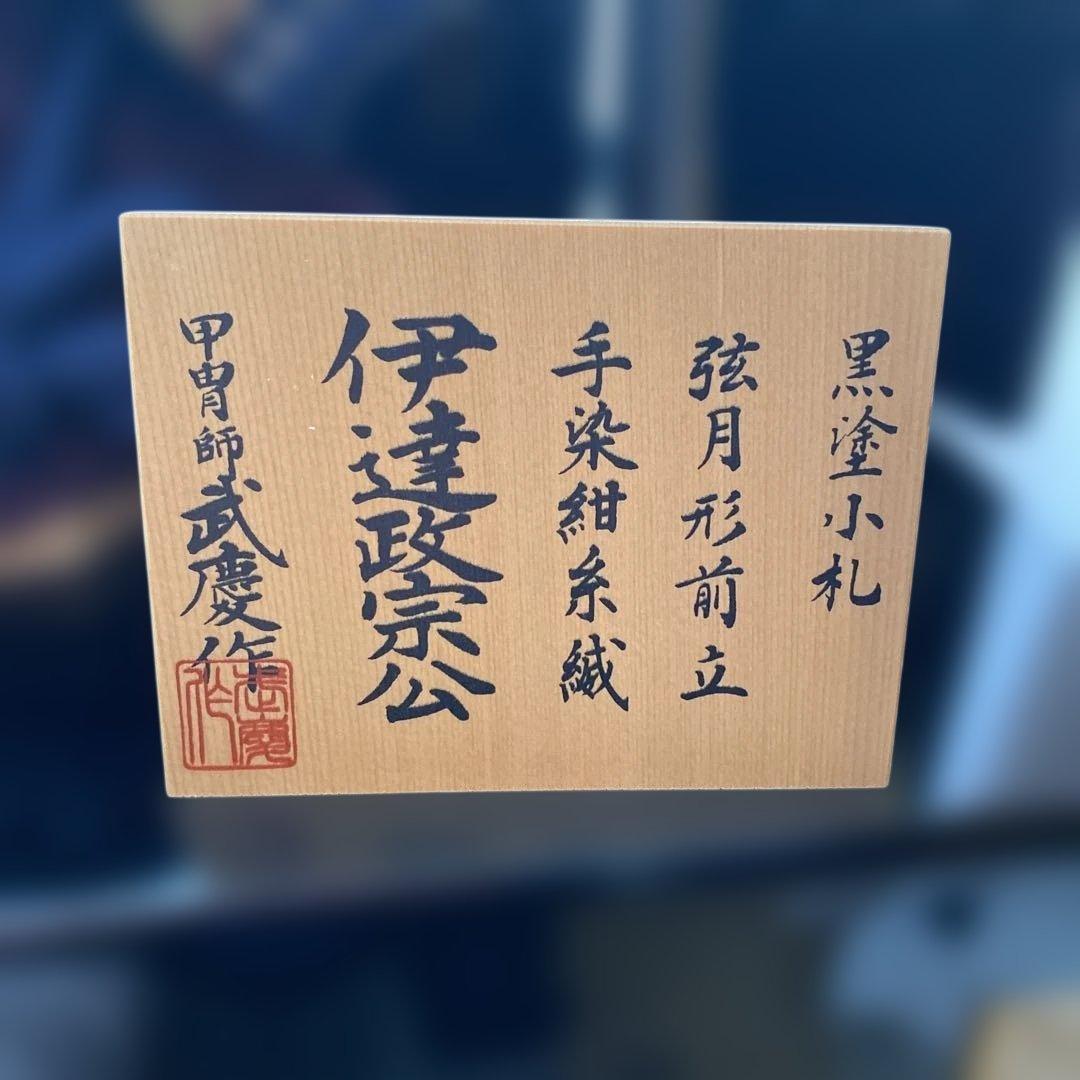 黒塗小札
弦月形前立
手染紺糸縅
伊達政宗公
甲冑師武慶作
武慶作